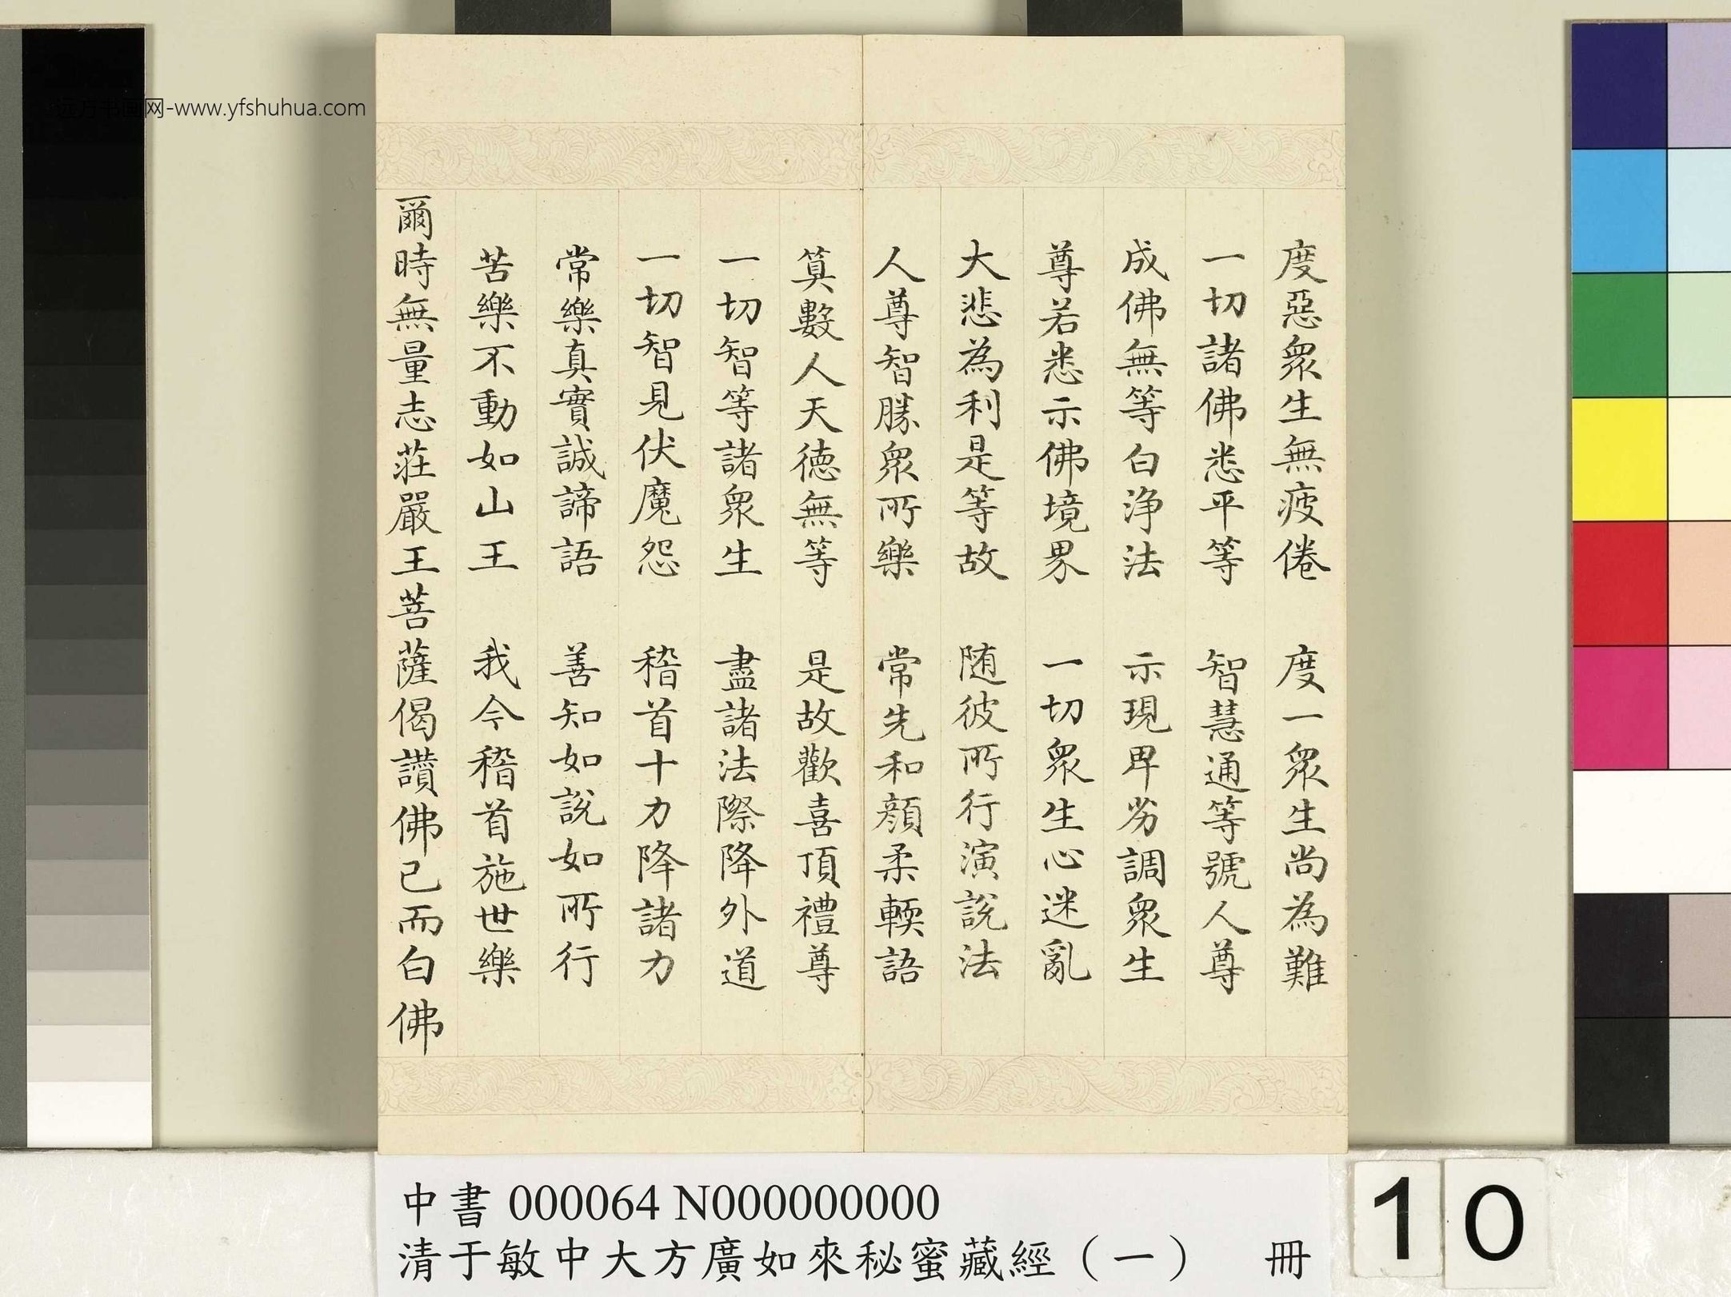 度惡衆生無疲倦　度一衆生尚為難
一切諸佛悉平等　智慧通等號人尊
成佛無等白浄法　示現卑劣調衆生
尊若悉示佛境界　一切衆生心迷亂
大悲為利是等故　随彼所行演說法
人尊智勝衆所樂　常先和顔柔輭語
算數人天徳無等　是故歡喜頂禮尊
一切智等諸衆生　盡諸法際降外道
一切智見伏魔怨　稽首十力降諸力
常樂真實誠諦語　善知如說如所行
苦樂不動如山王　我今稽首施世樂
爾時無量志莊嚴王菩薩偈讚佛已而白佛
中書 000064 N000000000
清于敏中大方廣如來秘蜜藏經（一）　冊
10
书画网-www.yfshuhua.com